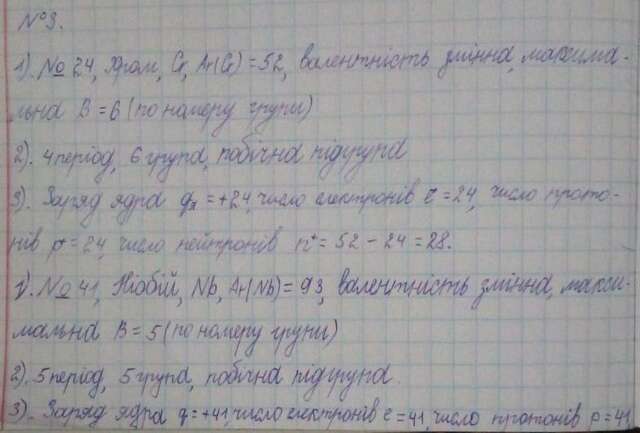 №3.
1). № 24, Хром, Cr, Ar(Cr) = 52, валентність змінна, максима-
льна В = 6 (по номеру групи)
2). 4 період, 6 група, побічна підгрупа
3). Заряд ядра qя = +24, число електронів e̅ = 24, число прото-
нів p⁺ = 24, число нейтронів n⁺ = 52 - 24 = 28.
1). № 41, Ніобій, Nb, Ar(Nb) = 93, валентність змінна, макси-
мальна В = 5 (по номеру групи)
2). 5 період, 5 група, побічна підгрупа.
3). Заряд ядра q = +41, число електронів e = 41, число протонів p = 41